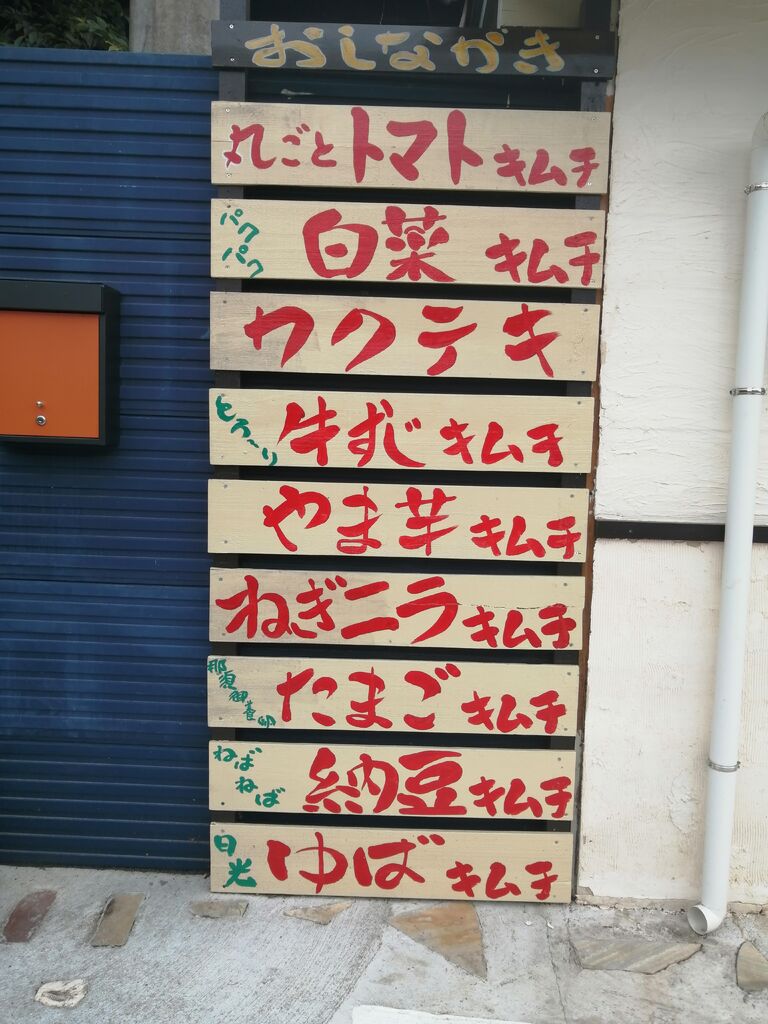 おしながき
丸ごとトマトキムチ
パクパク白菜キムチ
カクテキ
とろ〜り牛すじキムチ
やま芋キムチ
ねぎニラキムチ
那須御養卵たまごキムチ
ねばねば納豆キムチ
日光ゆばキムチ